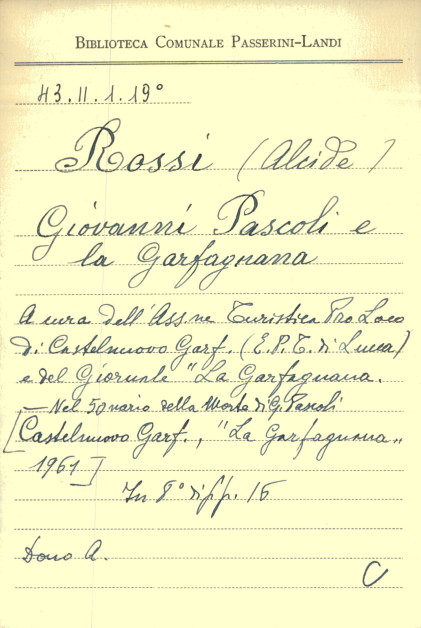 BIBLIOTECA COMUNALE PASSERINI-LANDI
43.II.1.19°
Rossi (Alcide)
Giovanni Pascoli e
la Garfagnana
A cura dell'Ass.ne Turistica Pro Loco
di Castelnuovo Garf. (E.P.T. di Lucca)
e del Giornale "La Garfagnana.
— Nel 50nario della Morte di G. Pascoli
[Castelnuovo Garf., "La Garfagnana"
1961]
In 8° di pp. 16
Dono A.
C